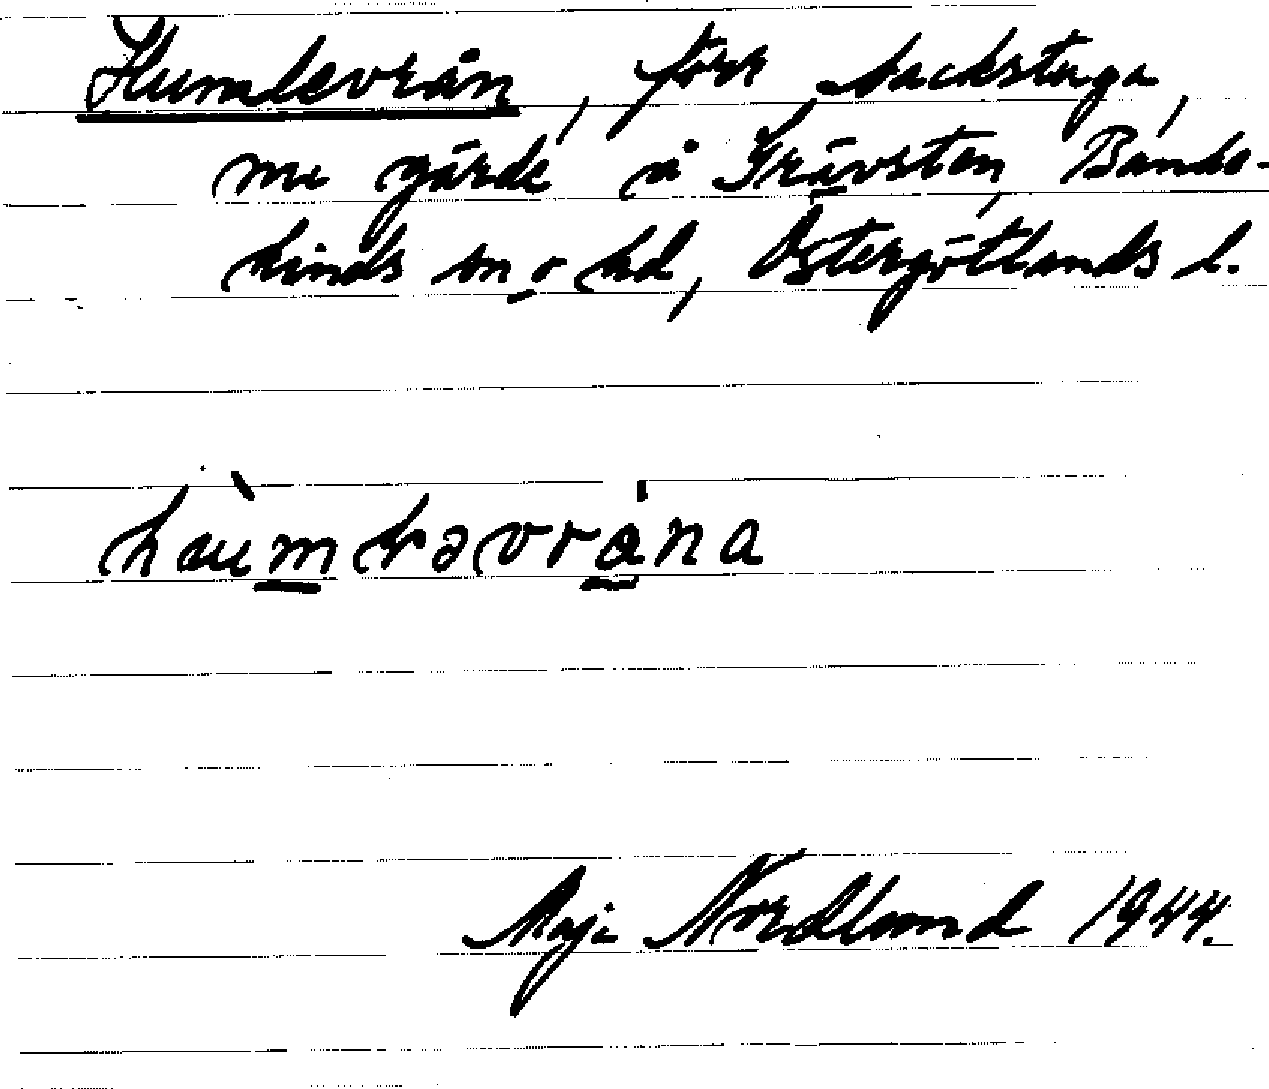 Humlevrån, förr backstuga,
nu gärde å Grävsten, Banke-
kinds sn o hd, Östergötlands l.
Maja Nordlund 1944.